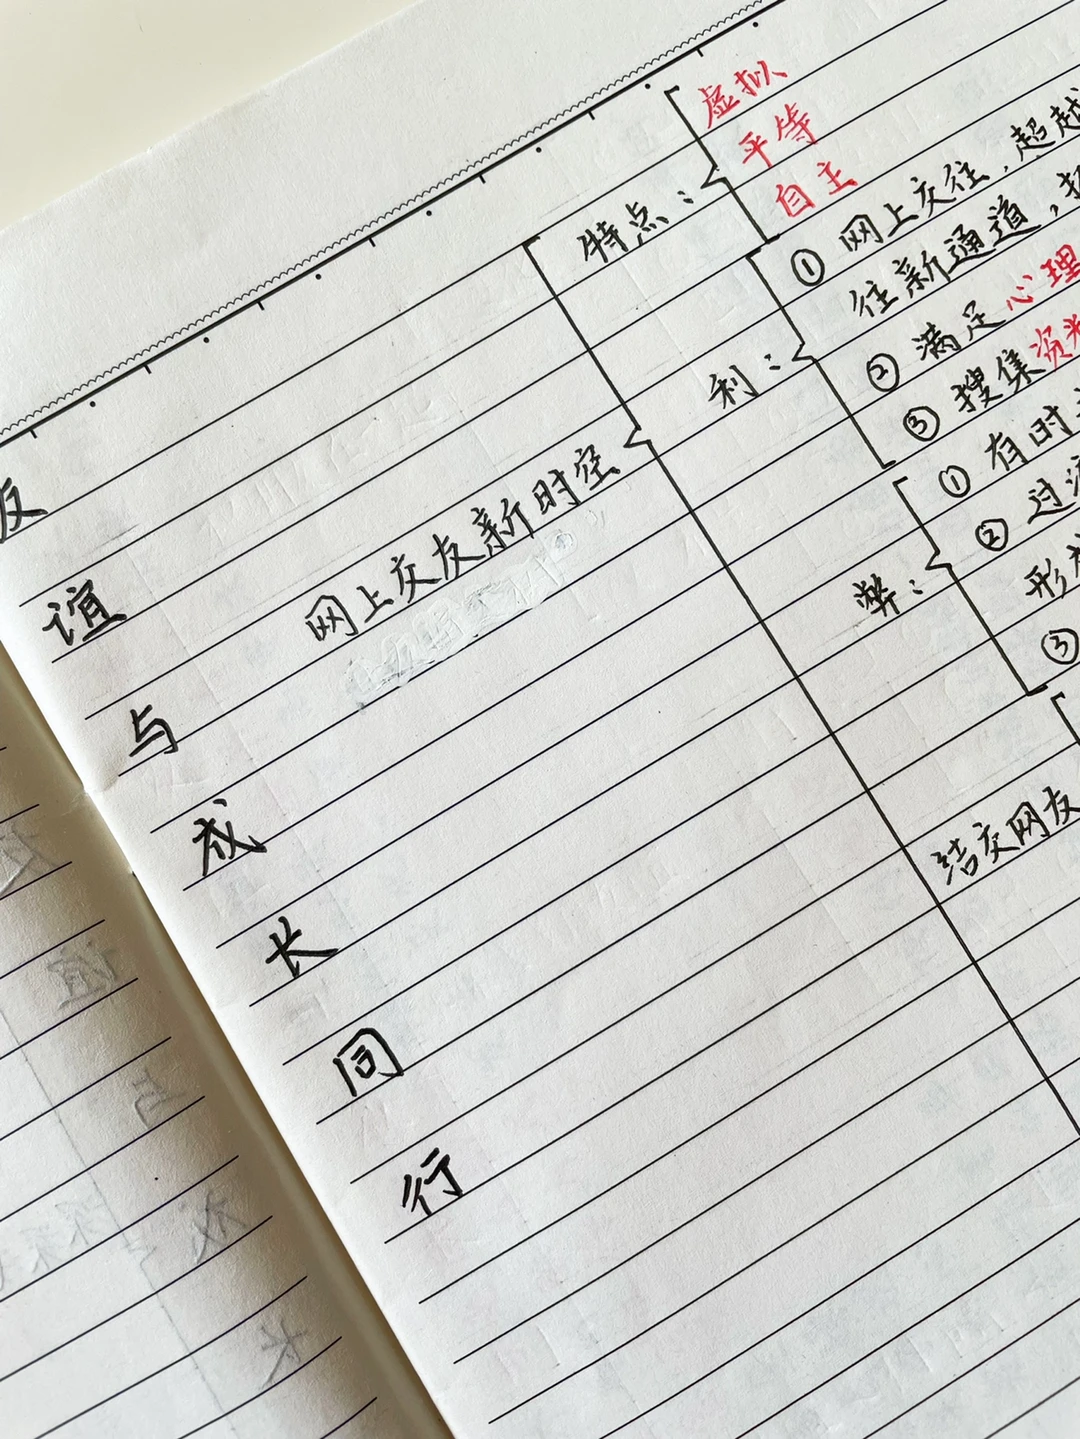 友
谊
与
成
长
同
行
网上交友新时空
特点：
虚拟
平等
自主
利：
① 网上交往，超越
往新通道，拓
② 满足心理
③ 搜集资料
弊：
① 有时
② 过
形成
③
结交网友